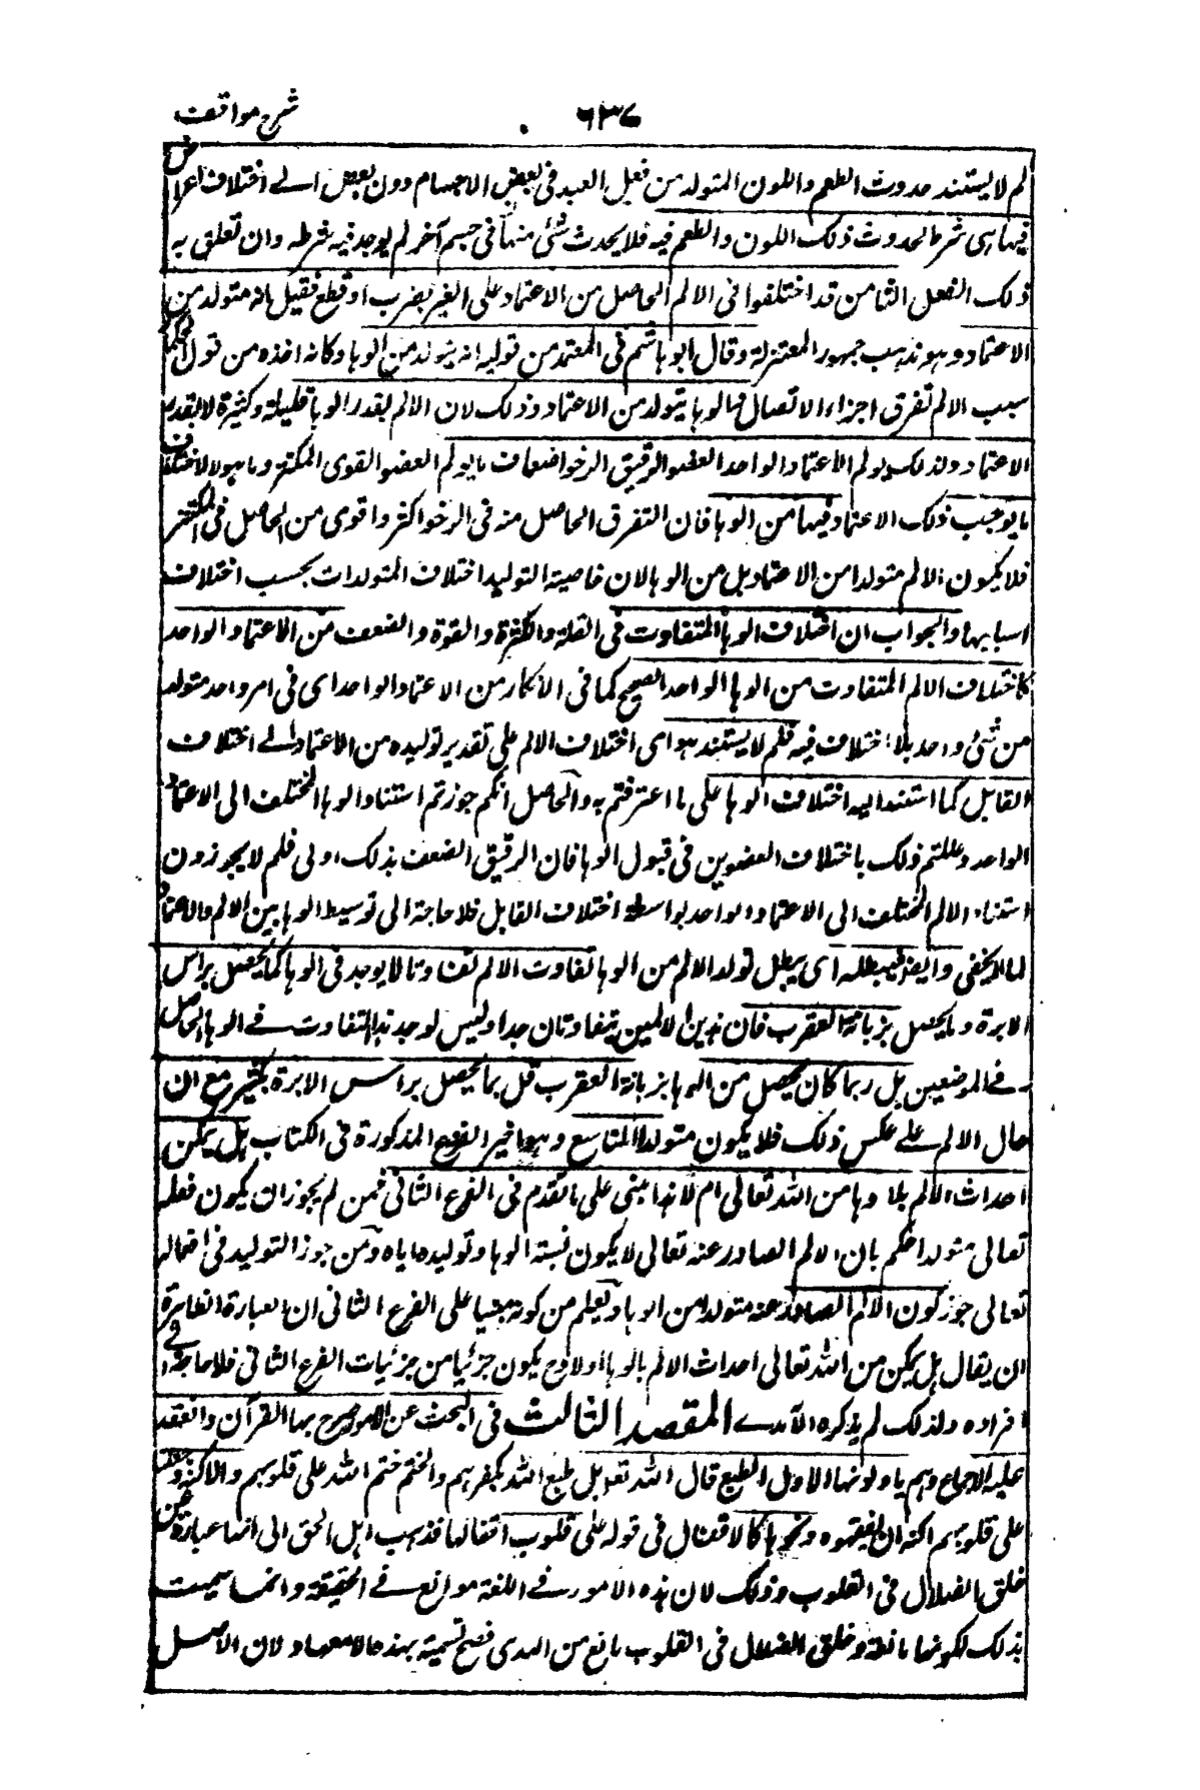 شرح مواقف
٦٣٧
لم لا يستند حدوث الطعم واللون المتولد من فعل العبد فى بعض الاجسام دون بعض الے اختلاف اعراض
فيها هى شرط لحدوث ذلك اللون والطعم فيه فلا يحدث شئ منها فى جسم آخر لم يوجد فيه شرطه وان تعلق به
ذلك الفعل الثامن قد اختلفوا فى الالم الحاصل من الاعتماد على الغير بضرب او قطع فقيل انه متولد من
الاعتماد وهو مذهب جمهور المعتزلة وقال ابو هاشم فى المعتمد من قوليه انه يتولد من الوها وكانه اخذه من قول الحكماء
سبب الالم تفرق اجزاء الاتصال فالوها يتولد من الاعتماد وذلك لان الالم بقدر الوها قليله وكثيرة لا بقدر
الاعتماد ولذلك يولم الاعتماد الواحد العضو الرقيق الرخو اضعاف ما يولم العضو القوى المكتنز وما هو الا لاختلاف
ما يوجب ذلك الاعتماد فيهما من الوها فان التفرق الحاصل منه فى الرخو اكثر واقوى من الحاصل فى المكتنز
فلا يكون الالم متولدا من الاعتماد بل من الوها لان خاصية التوليد اختلاف المتولدات بحسب اختلاف
اسبابها والجواب ان اختلاف الوها المتفاوت فى القلة والكثرة والقوة والضعف من الاعتماد الواحد
كاختلاف الالم المتفاوت من الوها الواحد الصحيح كما فى الانكار من الاعتماد الواحد اى فى امر واحد متولد
من شئ واحد بلا اختلاف فيه فلم لا يستند هو اى اختلاف الالم على تقدير توليده من الاعتماد الے اختلاف
القابل كما استند اليه اختلاف الوها على ما اعترفتم به والحاصل انكم جوزتم استناد الوها المختلف الى الاعتماد
الواحد وعللتم ذلك باختلاف العضوين فى قبول الوها فان الرقيق الضعف بذلك اولى فلم لا يجوزون
استناد الالم المختلف الى الاعتماد الواحد بواسطة اختلاف القابل فلا حاجة الى توسيط الوها بين الالم والاعتماد
لما لا يخفى وايضا يبطله اى يبطل تولد الالم من الوها تفاوت الالم تفاوتا لا يوجد فى الوها كما يحصل براس
الابرة وما يحصل بزبانة العقرب فان هذين الالمين يتفاوتان جدا وليس يوجد هذا التفاوت فے الوها الحاصل
فے الموضعين بل ربما كان يحصل من الوها بزبانة العقرب قل بما يحصل براس الابرة بكثير مع ان
حال الالم علے عكس ذلك فلا يكون متولدا التاسع وهو اخير الفروع المذكورة فى الكتاب هل يمكن
احداث الالم بلا وها من الله تعالى ام لا هذا مبنى على ما تقدم فى الفرع الثانى فمن لم يجوز ان يكون فعله
تعالى متولدا حكم بان الالم الصادر عنه تعالى لا يكون نسبة الوها وتوليده اياه ومن جوز التوليد فى افعاله
تعالى جوز كون الالم الصادر عنه متولدا من الوها ويعلم من كونه مبنيا على الفرع الثانى ان العبارة الظاهرة
ان يقال هل يمكن من الله تعالى احداث الالم بالوها اولا وح يكون جزئيا من جزئيات الفرع الثانى فلا حاجة فے
افراده ولذلك لم يذكره الآمدے المقصد الثالث فى البحث عن الامور صرح بها القرآن وانعقد
عليه الاجماع وهم ياولونها الاول الطبع قال الله تعم بل طبع الله بكفرهم والختم ختم الله على قلوبهم والاكنة وجعلنا
على قلوبهم اكنة ان يفقهوه ونحوها كالاقفال فى قوله على قلوب اقفالها فذهب اهل الحق الى انها عبارة عن
خلق الضلال فى القلوب وذلك لان هذه الامور فے اللغة موانع فے الحقيقة وانما سميت
بذلك لكونها مانعة وخلق الضلال فى القلوب مانع من الهدى فصح تسميته بهذه الاسماء ولان الاصل